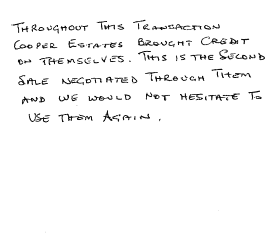 THROUGHOUT THIS TRANSACTION
COOPER ESTATES BROUGHT CREDIT
ON THEMSELVES. THIS IS THE SECOND
SALE NEGOTIATED THROUGH THEM
AND WE WOULD NOT HESITATE TO
USE THEM AGAIN.